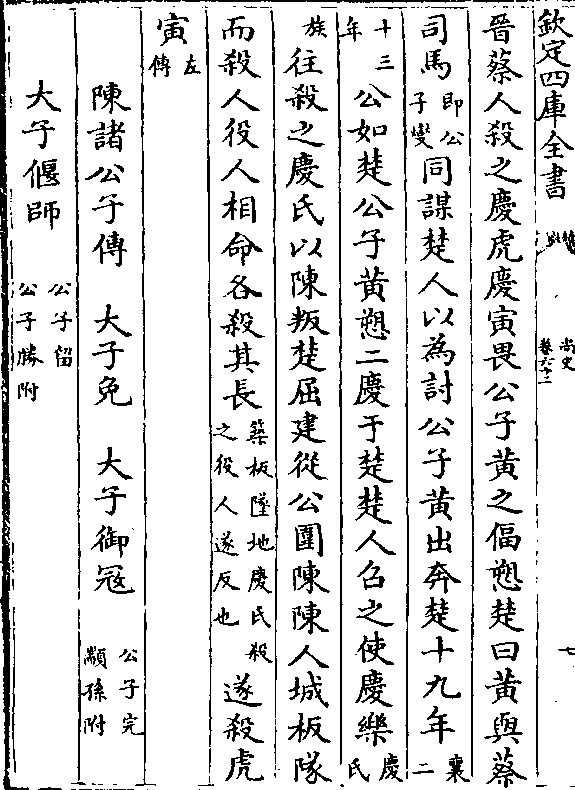 欽定四庫全書
尚史
卷六十二
七
晉蔡人殺之慶虎慶寅畏公子黃之偪愬楚曰黃與蔡
司馬即公子燮同謀楚人以為討公子黃出奔楚十九年襄二
十三年公如楚公子黃愬二慶于楚楚人召之使慶樂慶氏
族往殺之慶氏以陳叛楚屈建從公圍陳陳人城板隊
而殺人役人相命各殺其長築板墜地慶氏殺之役人遂反也遂殺虎
寅左傳
陳諸公子傳 大子免 大子御冦 公子完顓孫附
大子偃師 公子留公子勝附